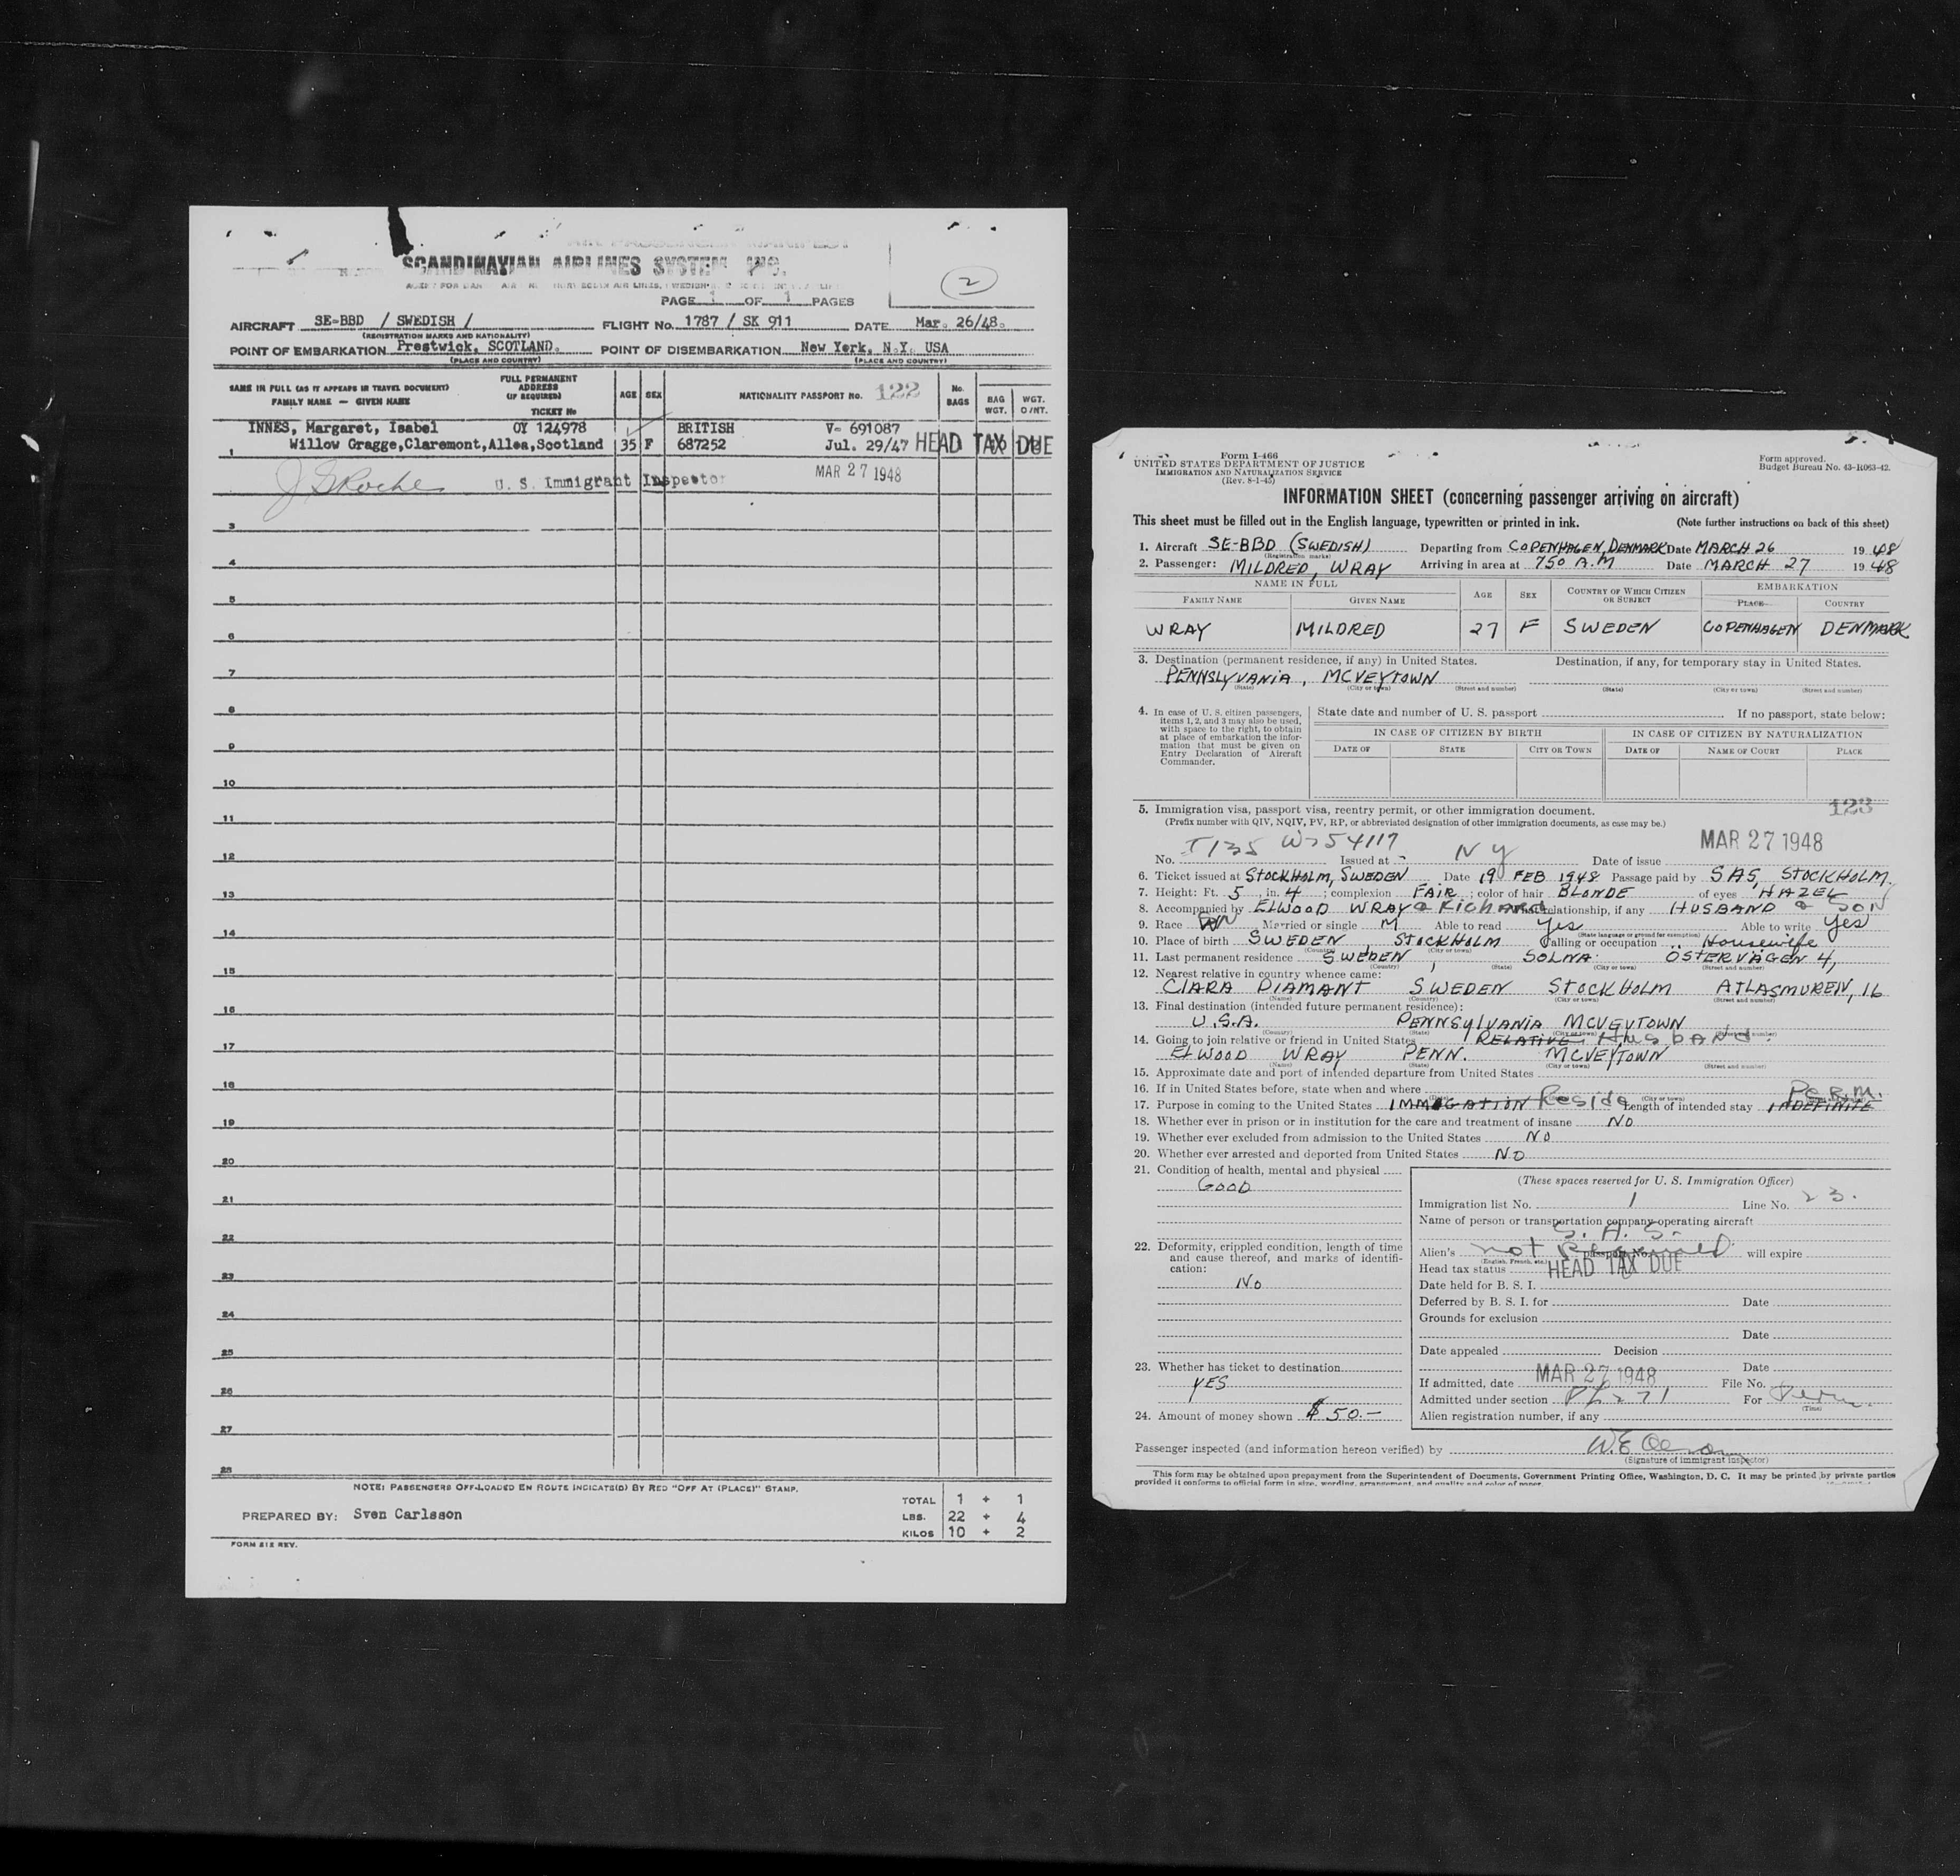 SCANDINAVIAN AIRLINES SYSTEM INC.
2
PAGE 1 OF 1 PAGES
AIRCRAFT SE-BBD / SWEDISH / FLIGHT No. 1787 / SK 911 DATE Mar. 26/48.
(REGISTRATION MARKS AND NATIONALITY)
POINT OF EMBARKATION Prestwick, SCOTLAND. POINT OF DISEMBARKATION New York, N.Y. USA
(PLACE AND COUNTRY) (PLACE AND COUNTRY)
NAME IN FULL (AS IT APPEARS IN TRAVEL DOCUMENT) FAMILY NAME — GIVEN NAME FULL PERMANENT ADDRESS (IF REQUIRED) TICKET No AGE SEX NATIONALITY PASSPORT No. 122 No. BAGS BAG WGT. WGT. O/NT.
INNES, Margaret, Isabel OY 124978 BRITISH V- 691087
1 Willow Gragge,Claremont,Alloa,Scotland 35 F 687252 Jul. 29/47 HEAD TAX DUE
U. S. Immigrant Inspector MAR 27 1948
3
4
5
6
7
8
9
10
11
12
13
14
15
16
17
18
19
20
21
22
23
24
25
26
27
28
NOTE: PASSENGERS OFF-LOADED EN ROUTE INDICATE(D) BY RED "OFF AT (PLACE)" STAMP.
TOTAL 1 + 1
PREPARED BY: Sven Carlsson LBS. 22 + 4
KILOS 10 + 2
FORM 212 REV.
Form I-466
UNITED STATES DEPARTMENT OF JUSTICE
IMMIGRATION AND NATURALIZATION SERVICE
(Rev. 8-1-45)
Form approved.
Budget Bureau No. 43-R063-42.
INFORMATION SHEET (concerning passenger arriving on aircraft)
This sheet must be filled out in the English language, typewritten or printed in ink. (Note further instructions on back of this sheet)
1. Aircraft SE-BBD (SWEDISH) Departing from COPENHAGEN, DENMARK Date MARCH 26 1948
(Registration marks)
2. Passenger: MILDRED, WRAY Arriving in area at 750 A.M Date MARCH 27 1948
NAME IN FULL AGE SEX COUNTRY OF WHICH CITIZEN OR SUBJECT EMBARKATION
FAMILY NAME GIVEN NAME PLACE COUNTRY
WRAY MILDRED 27 F SWEDEN COPENHAGEN DENMARK
3. Destination (permanent residence, if any) in United States. Destination, if any, for temporary stay in United States.
PENNSLYVANIA, MCVEYTOWN
(State) (City or town) (Street and number) (State) (City or town) (Street and number)
4. In case of U. S. citizen passengers, items 1, 2, and 3 may also be used, with space to the right, to obtain at place of embarkation the information that must be given on Entry Declaration of Aircraft Commander.
State date and number of U. S. passport If no passport, state below:
IN CASE OF CITIZEN BY BIRTH IN CASE OF CITIZEN BY NATURALIZATION
DATE OF STATE CITY OR TOWN DATE OF NAME OF COURT PLACE
5. Immigration visa, passport visa, reentry permit, or other immigration document. 123
(Prefix number with QIV, NQIV, PV, RP, or abbreviated designation of other immigration documents, as case may be.)
No. Issued at NY Date of issue MAR 27 1948
6. Ticket issued at STOCKHOLM, SWEDEN Date 19 FEB 1948 Passage paid by SAS, STOCKHOLM.
7. Height: Ft. 5, in. 4; complexion FAIR; color of hair BLONDE of eyes HAZEL
8. Accompanied by ELWOOD WRAY & Richard What relationship, if any HUSBAND & SON
9. Race Married or single M Able to read Yes Able to write Yes
(State language or ground for exemption)
10. Place of birth SWEDEN, STOCKHOLM Calling or occupation Housewife
(Country) (City or town)
11. Last permanent residence SWEDEN, SOLNA. ÖSTERVÄGEN 4,
(Country) (State) (City or town) (Street and number)
12. Nearest relative in country whence came:
CLARA DIAMANT SWEDEN STOCKHOLM ATLASMUREN, 16
(Name) (Country) (City or town) (Street and number)
13. Final destination (intended future permanent residence):
U.S.A. PENNSYLVANIA MCVEYTOWN
(Country) (State) (City or town) (Street and number)
14. Going to join relative or friend in United States RELATIVE Husband.
ELWOOD WRAY PENN. MCVEYTOWN
(Name) (State) (City or town) (Street and number)
15. Approximate date and port of intended departure from United States
16. If in United States before, state when and where
PERM.
17. Purpose in coming to the United States IMMIGRATION Reside Length of intended stay INDEFINITE
18. Whether ever in prison or in institution for the care and treatment of insane NO
19. Whether ever excluded from admission to the United States NO
20. Whether ever arrested and deported from United States NO
21. Condition of health, mental and physical
GOOD
22. Deformity, crippled condition, length of time and cause thereof, and marks of identification:
NO
23. Whether has ticket to destination
YES
24. Amount of money shown $ 50.-
(These spaces reserved for U. S. Immigration Officer)
Immigration list No. 1 Line No. 23.
Name of person or transportation company operating aircraft
S. A. S.
Alien's not passport No. will expire
(English, French, etc.)
Head tax status HEAD TAX DUE
Date held for B. S. I.
Deferred by B. S. I. for Date
Grounds for exclusion
Date
Date appealed Decision
Date
If admitted, date MAR 27 1948 File No.
Admitted under section PL 271 For Perm.
(Time)
Alien registration number, if any
Passenger inspected (and information hereon verified) by
(Signature of immigrant inspector)
This form may be obtained upon prepayment from the Superintendent of Documents, Government Printing Office, Washington, D. C. It may be printed by private parties
provided it conforms to official form in size, wording, arrangement, and quality and color of paper.